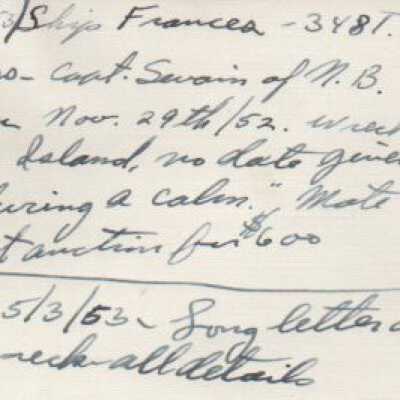 3/Ship Frances - 348 T.
so- Capt. Swain of N.B.
Nov. 29th/52. wreck
Island, no date given
during a calm." Mate
t auction for $600
5/3/53 - Long letter
reck - all details